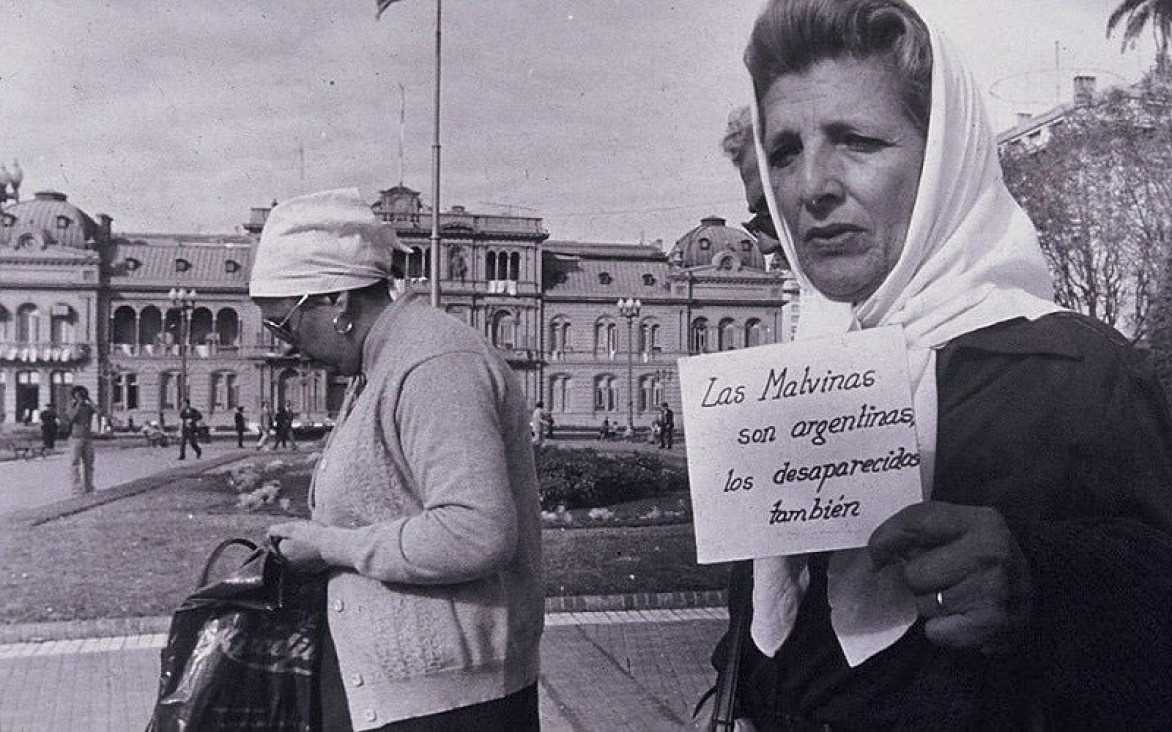 Las Malvinas
son argentinas,
los desaparecidos
también